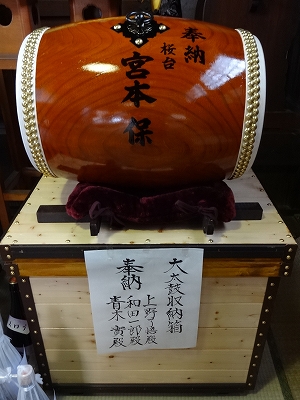 奉納
桜台
宮本保
大太鼓収納箱
奉納
上野 殿
和田一郎殿
青木 殿